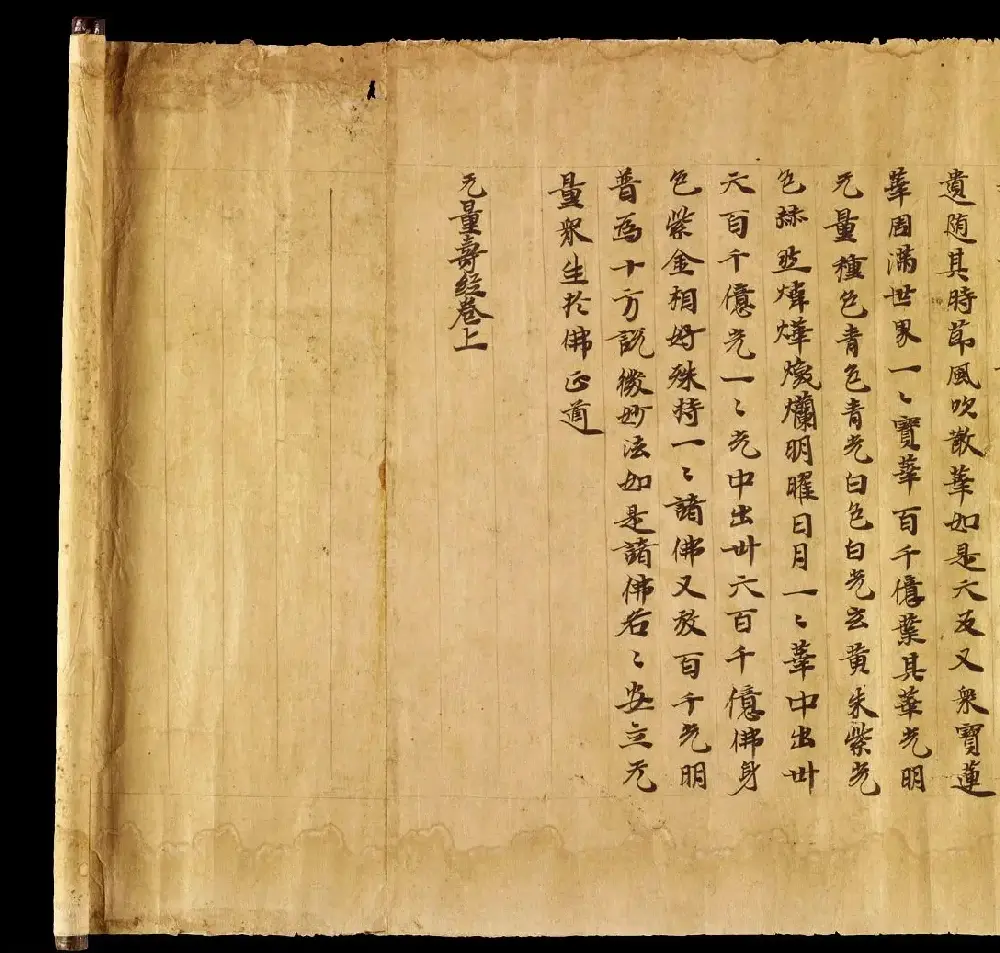 遺随其時節風吹散華如是六反又衆寶蓮
華周滿世界一〻寶華百千億葉其華光明
无量種色青色青光白色白光玄黄朱紫光
色赫然煒燁煥爛明曜日月一〻華中出卅
六百千億光一〻光中出卅六百千億佛身
色紫金相好殊特一〻諸佛又放百千光明
普爲十方説微妙法如是諸佛各〻安立无
量衆生於佛正道
无量壽経卷上